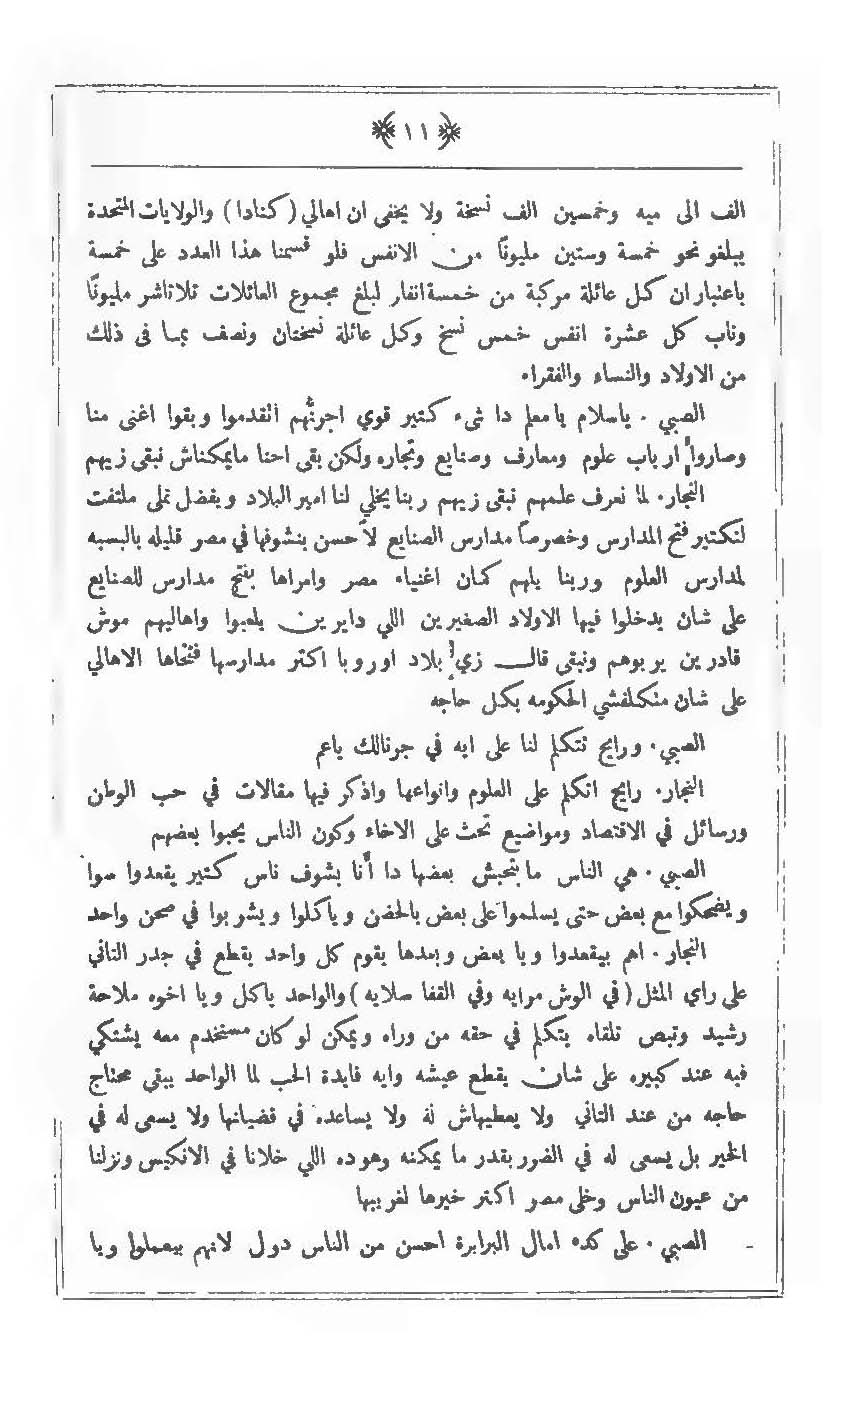 ﴿ ١١ ﴾
الف الى ميه وخمسين الف نسخة ولا يخفى ان اهالي (كنادا) والولايات المتحدة
يبلغو نحو خمسة وستين مليونًا من الانفس فلو قسمنا هذا العدد على خمسة
باعتبار ان كل عائلة مركبة من خمسة انفار لبلغ مجموع العائلات ثلاثاشر مليونًا
وناب كل عشرة انفس خمس نسخ وكل عائلة نسختان ونصف بما في ذلك
من الاولاد والنساء والفقراء
الصبي . ياسلام يا معلم دا شىء كتير قوي اجرنهم اتقدموا وبقوا اغنى منا
وصاروا ارباب علوم ومعارف وصنايع وتجاره ولكن بقى احنا مايمكناش نبقى زيهم
النجار . لما نعرف علمهم نبقى زيهم ربنا يخلي لنا امير البلاد ويفضل تملي ملتفت
لتكتير فتح المدارس وخصوصاً مدارس الصنايع لأحسن بنشوفها في مصر قليله بالبسبه
لمدارس العلوم وربنا يلهم كمان اغنياء مصر وامراها بفتح مدارس للصنايع
على شان يدخلوا فيها الاولاد الصغيرين اللي دايرين يلعبوا واهاليهم موش
قادرين يربوهم ونبقى قال زي بلاد اوروبا اكتر مدارسها فتحاها الاهالي
على شان متكلفشي الحكومه بكل حاجه
الصبي . ورايح تتكلم لنا على ايه في جرنالك ياعم
النجار . رايح اتكلم على العلوم وانواعها واذكر فيها مقالات في حب الوطن
ورسائل في الاقتصاد ومواضيع تحث على الاخاء وكون الناس يحبوا بعضهم
الصبي . هي الناس ما بتحبش بعضها دا أنا بشوف ناس كتير يقعدوا سوا
ويضحكوا مع بعض حتى يسلموا على بعض بالحضن وياكلوا ويشربوا في صحن واحد
النجار . اهم بيقعدوا ويا بعض وبعدها يقوم كل واحد يقطع في جدر التاني
على راي المثل (في الوش مرايه وفي القفا سلايه) والواحد ياكل ويا اخوه ملاحة
رشيد وتبص تلقاه يتكلم في حقه من وراه ويمكن لو كان مستخدم معه يشتكي
فيه عند كبيره على شان يقطع عيشه وايه فايدة الحب لما الواحد يبقي محتاج
حاجه من عند التاني ولا يعطيهاش له ولا يساعده في قضيانها ولا يسعى له في
الخير بل يسعى له في الضرر بقدر ما يمكنه وهو ده اللي خلانا في الانكيس ونزلنا
من عيون الناس وخلى مصر اكتر خيرها لغريبها
الصبي . على كده امال البرابرة احسن من الناس دول لانهم بيعملوا ويا